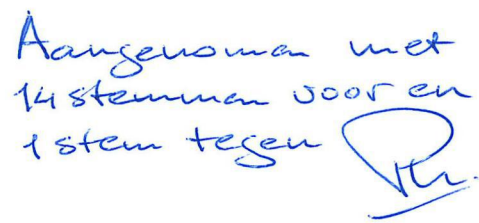 Aangenomen met
14 stemmen voor en
1 stem tegen